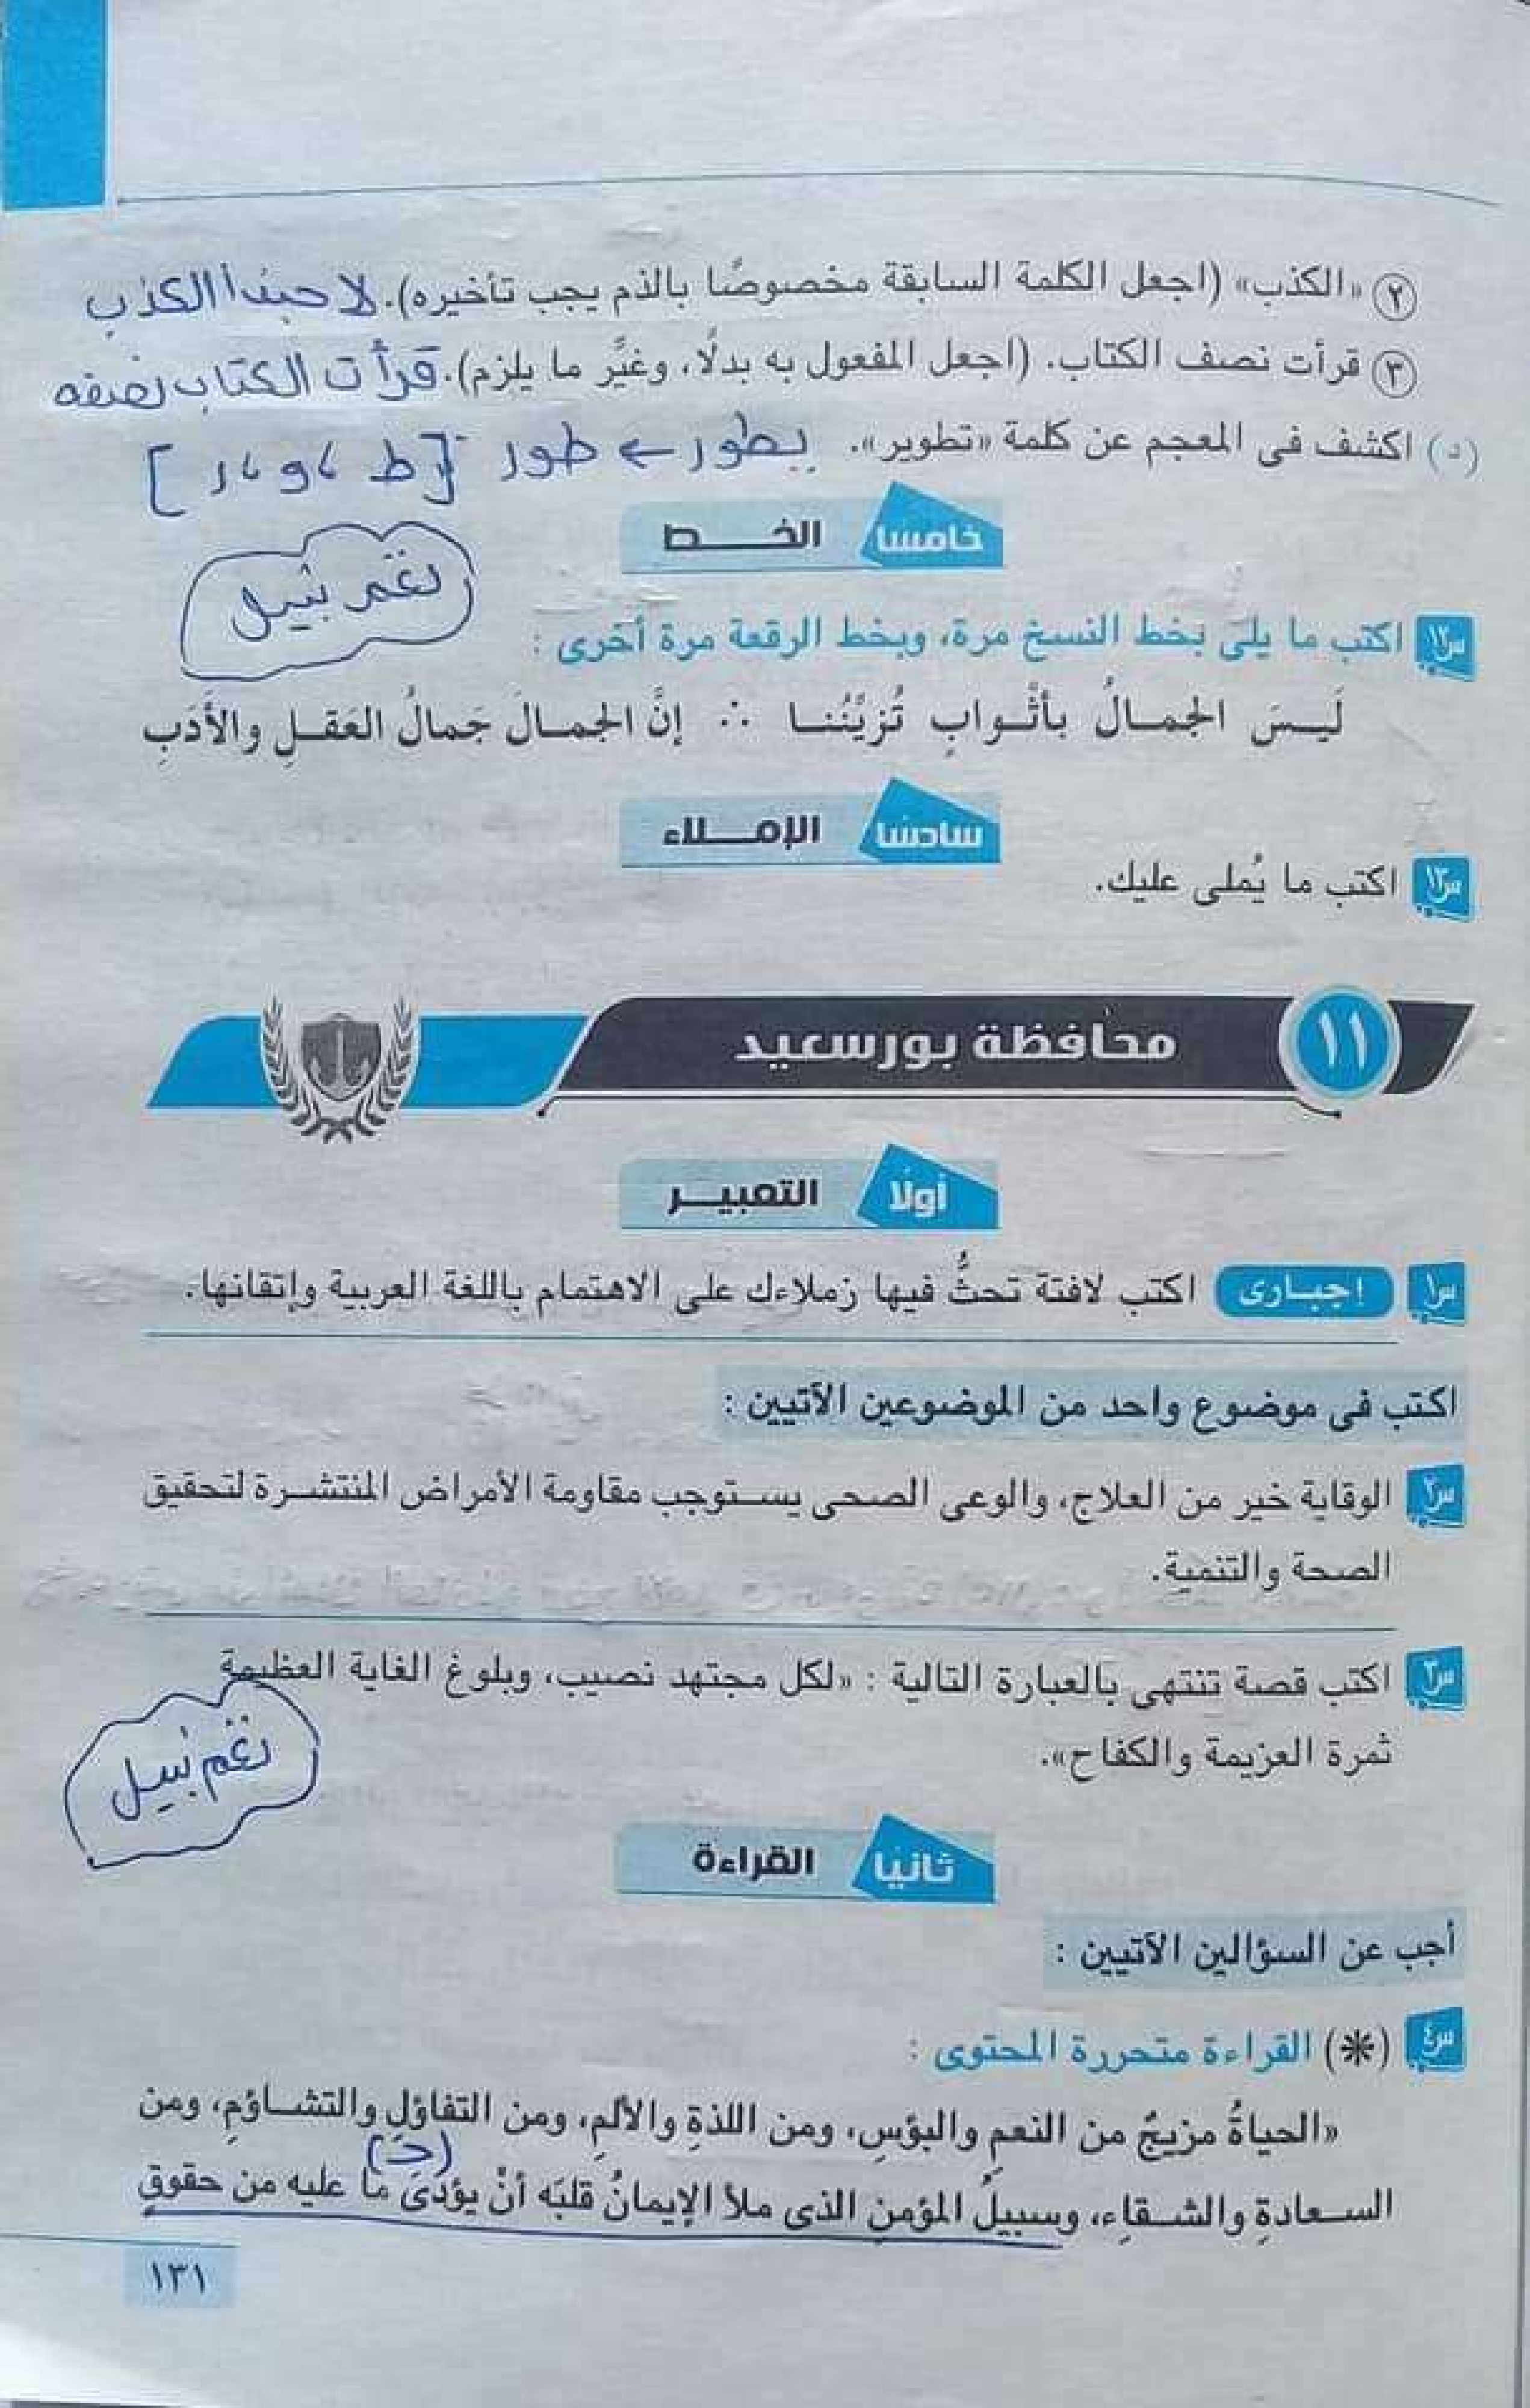 ٢ «الكذب» (اجعل الكلمة السابقة مخصوصًا بالذم يجب تأخيره). لا حبذا الكذب
٣ قرأت نصف الكتاب. (اجعل المفعول به بدلًا، وغيِّر ما يلزم). قرأت الكتاب نصفه
(د) اكشف فى المعجم عن كلمة «تطوير». يطور ← طور [ط، و، ر]
خامسًا الخـــط
نغم نبيل
س١٢ اكتب ما يلى بخط النسخ مرة، وبخط الرقعة مرة أخرى :
لَيـسَ الجمـالُ بأثْـوابٍ تُزيِّنُنـا ∴ إنَّ الجمـالَ جَمالُ العَقـلِ والأَدَبِ
سادسًا الإمـــلاء
س١٣ اكتب ما يُملى عليك.
١١ محافظة بورسعيد
أولًا التعبيـــر
س١ إجبـارى اكتب لافتة تحثُّ فيها زملاءك على الاهتمام باللغة العربية وإتقانها.
اكتب فى موضوع واحد من الموضوعين الآتيين :
س٢ الوقاية خير من العلاج، والوعى الصحى يستوجب مقاومة الأمراض المنتشرة لتحقيق
الصحة والتنمية.
س٣ اكتب قصة تنتهى بالعبارة التالية : «لكل مجتهد نصيب، وبلوغ الغاية العظيمة
ثمرة العزيمة والكفاح».
نغم نبيل
ثانيا القراءة
أجب عن السؤالين الآتيين :
س٤ (*) القراءة متحررة المحتوى :
«الحياةُ مزيجٌ من النعمِ والبؤسِ، ومن اللذةِ والألمِ، ومن التفاؤلِ والتشاؤمِ، ومن
(جـ)
السعادةِ والشقاءِ، وسبيلُ المؤمنِ الذى ملأ الإيمانُ قلبَه أنْ يؤدىَ ما عليه من حقوقٍ
١٣١